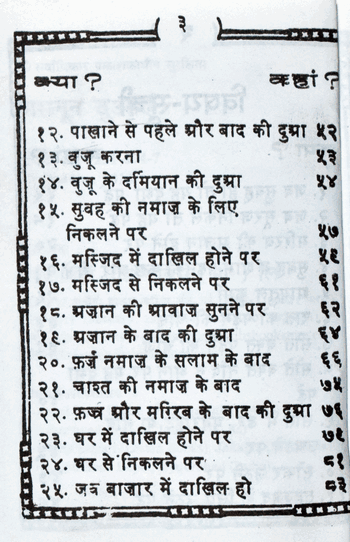 ( ३ )
क्या ? कहां ?
१२. पाखाने से पहले और बाद की दुआ ५२
१३. वुजू करना ५३
१४. वुजू के दर्मियान की दुआ ५४
१५. सुबह की नमाज़ के लिए
निकलने पर ५७
१६. मस्जिद में दाखिल होने पर ५९
१७. मस्जिद से निकलने पर ६१
१८. अज़ान की आवाज़ सुनने पर ६२
१९. अज़ान के बाद की दुआ ६४
२०. फ़र्ज़ नमाज़ के सलाम के बाद ६६
२१. चाश्त की नमाज़ के बाद ७५
२२. फ़ज्र और मग्रिब के बाद की दुआ ७६
२३. घर में दाखिल होने पर ७९
२४. घर से निकलने पर ८१
२५. जब बाज़ार में दाखिल हो ८३